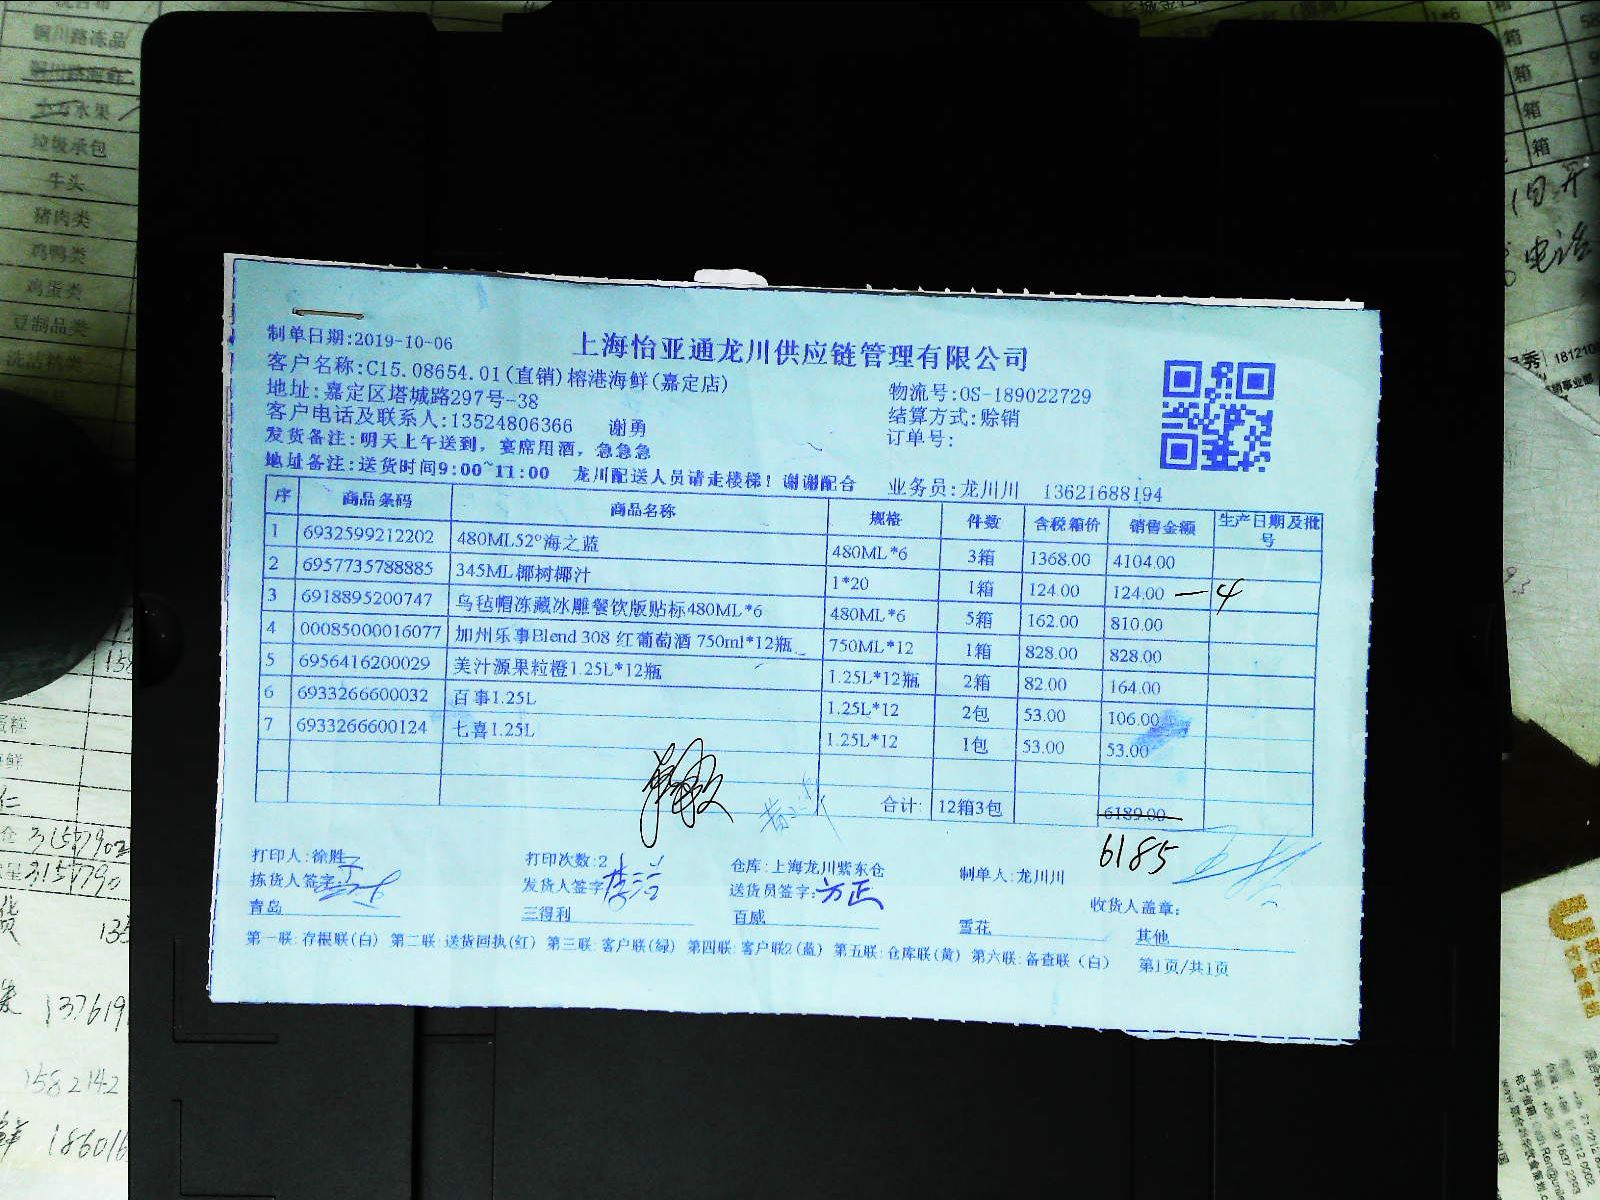 制单日期:2019-10-06
上海怡亚通龙川供应链管理有限公司
客户名称:C15.08654.01(直销)榕港海鲜(嘉定店)
物流号:OS-189022729
地址:嘉定区塔城路297号-38
结算方式:赊销
客户电话及联系人:13524806366 谢勇
订单号:
发货备注:明天上午送到，宴席用酒，急急急
地址备注:送货时间9:00~11:00 龙川配送人员请走楼梯！谢谢配合
业务员:龙川川 13621688194
序 商品条码 商品名称 规格 件数 含税箱价 销售金额 生产日期及批号
1 6932599212202 480ML52°海之蓝 480ML*6 3箱 1368.00 4104.00
2 6957735788885 345ML椰树椰汁 1*20 1箱 124.00 124.00 —4
3 6918895200747 乌毡帽冻藏冰雕餐饮版贴标480ML*6 480ML*6 5箱 162.00 810.00
4 00085000016077 加州乐事Blend 308 红葡萄酒 750ml*12瓶 750ML*12 1箱 828.00 828.00
5 6956416200029 美汁源果粒橙1.25L*12瓶 1.25L*12瓶 2箱 82.00 164.00
6 6933266600032 百事1.25L 1.25L*12 2包 53.00 106.00
7 6933266600124 七喜1.25L 1.25L*12 1包 53.00 53.00
合计: 12箱3包 6189.00
6185
打印人:徐胜 打印次数:2 仓库:上海龙川紫东仓 制单人:龙川川
拣货人签字: 发货人签字: 送货员签字:方正 收货人盖章:
青岛 三得利 百威 雪花 其他
第一联:存根联(白) 第二联:送货回执(红) 第三联:客户联(绿) 第四联:客户联2(蓝) 第五联:仓库联(黄) 第六联:备查联(白) 第1页/共1页
铜川路冻品
铜川路海鲜
水果
垃圾承包
牛头
猪肉类
鸡鸭类
鸡蛋类
豆制品类
1*6
箱
箱
箱
箱
电话